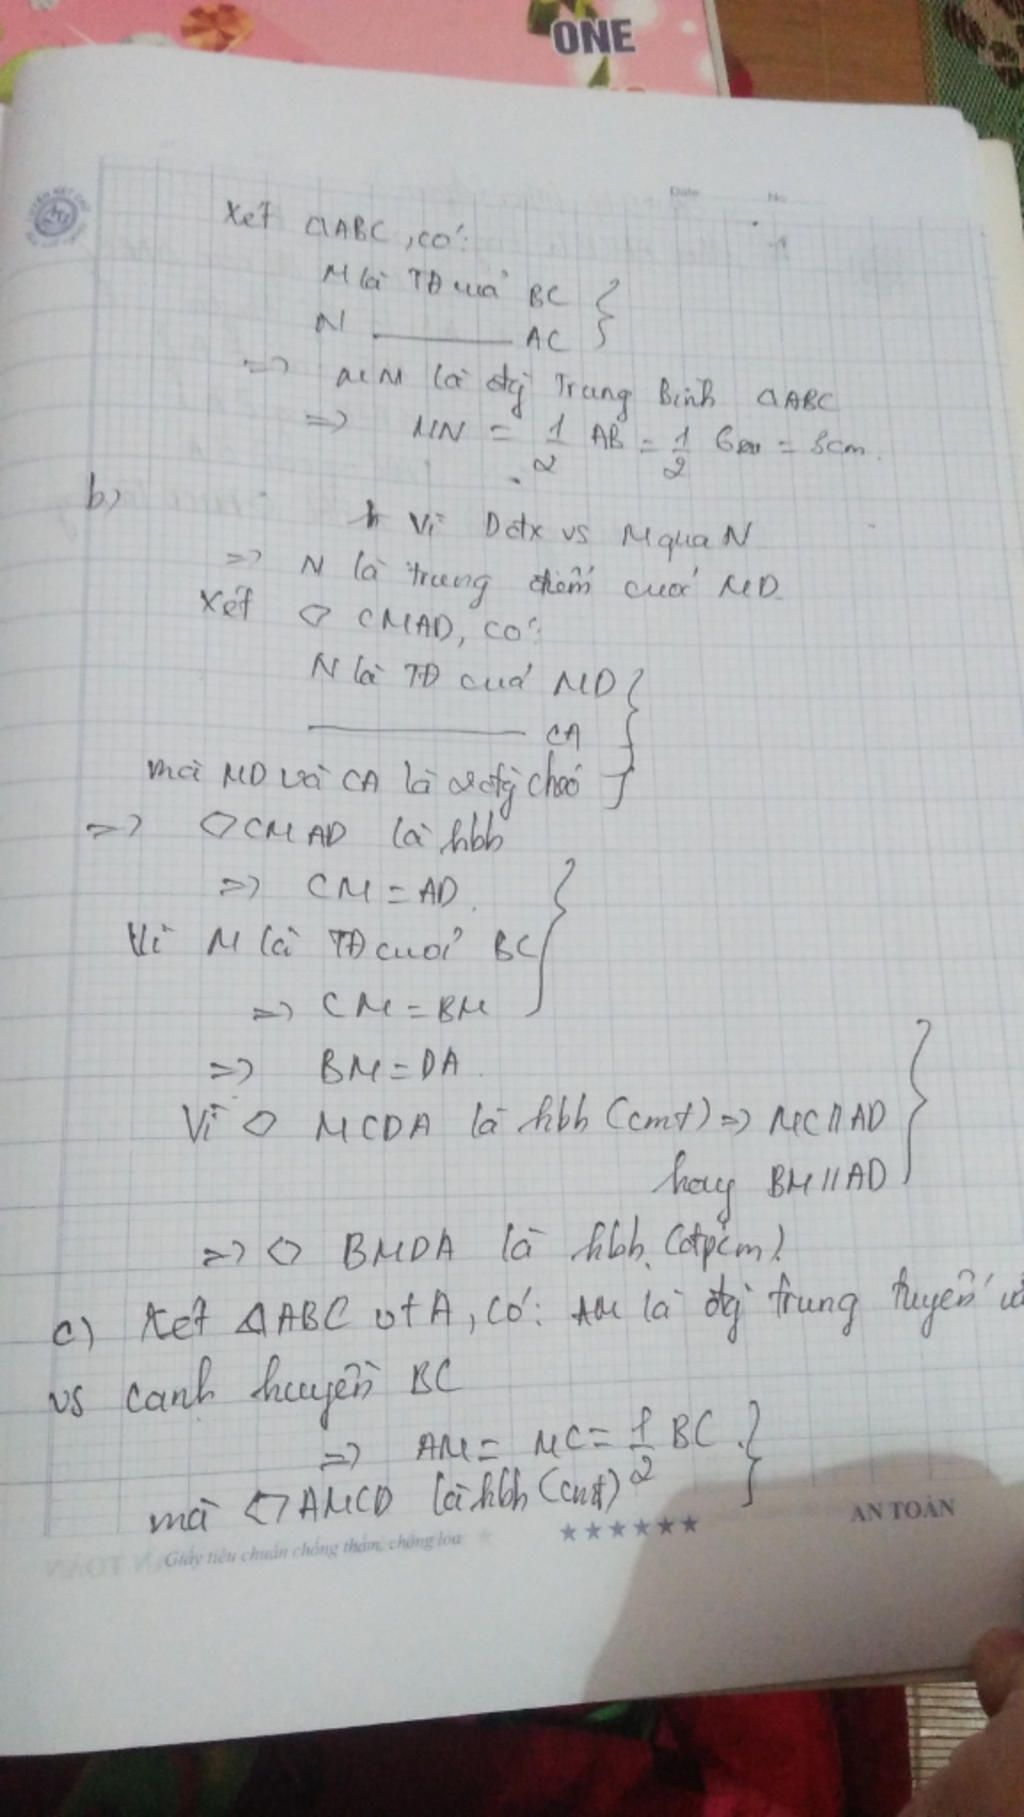 ONE
Date No
Xét △ABC, có:
M là TĐ của BC
N ______ AC
=> MN là đg Trung Bình △ABC
=> MN = 1/2 AB = 1/2 6cm = 3cm.
b)
Vì D đx vs M qua N
=> N là trung điểm của MD
Xét ▱ CMAD, có:
N là TĐ của MD
______ CA
mà MD và CA là 2 đg chéo
=> ▱CMAD là hbh
=> CM = AD.
Vì M là TĐ của BC
=> CM = BM
=> BM = DA.
Vì ▱ MCDA là hbh (cmt) => MC // AD
hay BM // AD
=> ▱ BMDA là hbh (đpcm)
c) Xét △ABC vt A, có: AM là đg trung tuyến
vs cạnh huyền BC
=> AM = MC = 1/2 BC.
mà ▱AMCD là hbh (cmt)
Giấy tiêu chuẩn chống thấm, chống lóa ★★★★★★ AN TOÀN